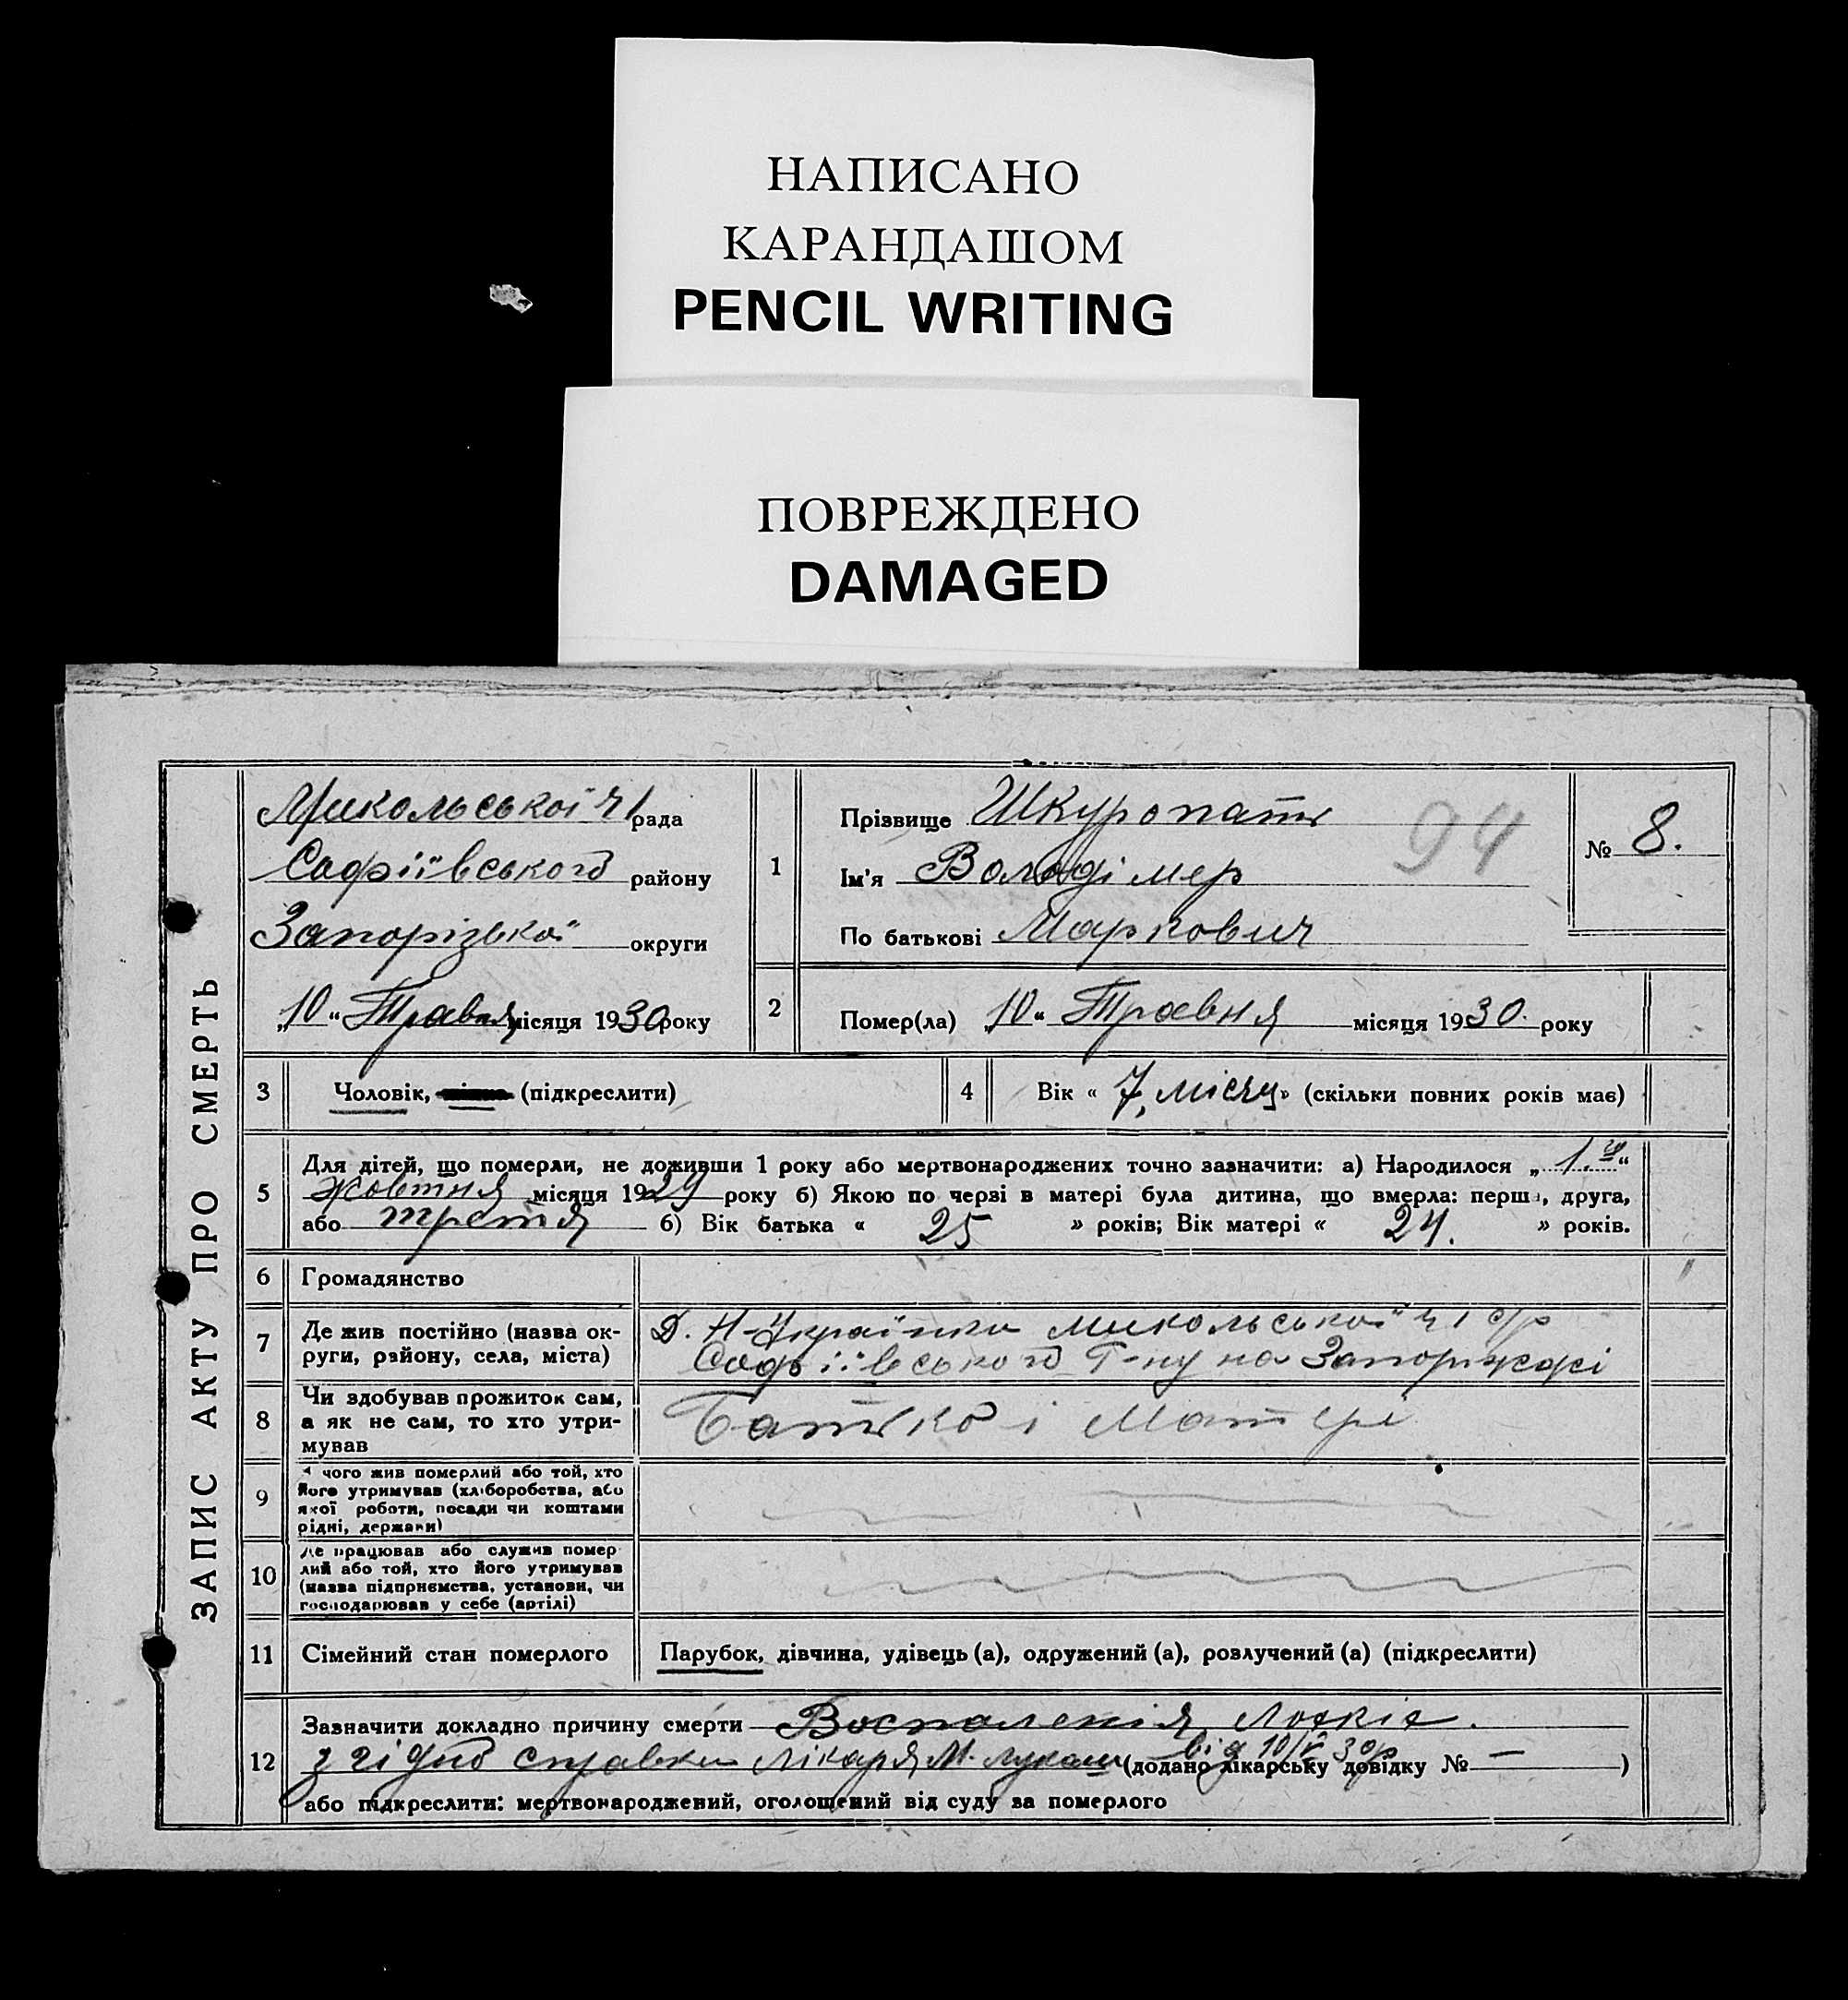 НАПИСАНО
КАРАНДАШОМ
PENCIL WRITING
ПОВРЕЖДЕНО
DAMAGED
ЗАПИС АКТУ ПРО СМЕРТЬ
Микольської ч1 рада
Софіївського району
Запорізької округи
„10“ Травня місяця 1930 року
1
Прізвище Шкуропать
94
Ім'я Володімер
По батькові Маркович
№ 8.
2
Помер(ла) „10“ Травня місяця 1930. року
3
Чоловік, (підкреслити)
4
Вік « 7 місяц» (скільки повних років має)
5
Для дітей, що померли, не доживши 1 року або мертвонароджених точно зазначити: а) Народилося „ 1.го “
жовтня місяця 1929 року б) Якою по черзі в матері була дитина, що вмерла: перша, друга,
або третья б) Вік батька « 25 » років; Вік матері « 24. » років.
6
Громадянство
7
Де жив постійно (назва ок-
руги, району, села, міста)
Д. Н-Українка Микольської ч1 с/р
Софіївського Р-ну на Запоріжжі
8
Чи здобував прожиток сам,
а як не сам, то хто утри-
мував
Батько і Матері
9
чого жив померлий або той, хто
його утримував (хліборобства, або
якої роботи, посади чи коштами
рідні, держави)
10
Де працював або служив помер
лий або той, хто його утримував
(назва підприємства, установи, чи
господарював у себе (артілі)
11
Сімейний стан померлого
Парубок, дівчина, удівець (а), одружений (а), розлучений (а) (підкреслити)
12
Зазначити докладно причину смерти Воспаленія Лохкіх.
згідно справки лікаря М. від 10/V 30р (додано лікарську довідку № — )
або підкреслити: мертвонароджений, оголошений від суду за померлого